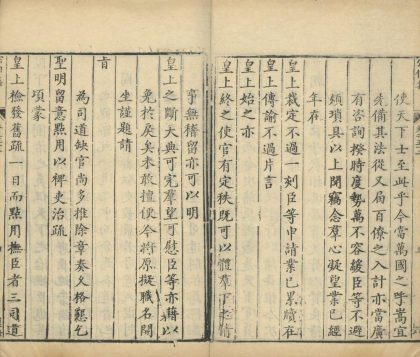 使天下安此乎今當萬國之呼嵩宜
先備其法從又届百僚之入計亦當廣
有咨詢揆時度勢萬不容緩臣等不避
煩瑣具以上聞竊念羣心凝望業已經
年在
皇上裁定不過一刻臣等申請業已累牘在
皇上傳諭不過片言
皇上始之亦
皇上終之使官有定秩既可以體羣下之情
事無稽留亦可以明
皇上之斷大典可完羣望可慰臣等亦藉以
免於戾矣未敢擅便今將原擬職名開
坐謹題請
旨
為司道缺官尚多推除章奏久格懇乞
聖明留意點用以裨吏治疏
項蒙
皇上檢發舊疏一日而點用撫臣者三司道